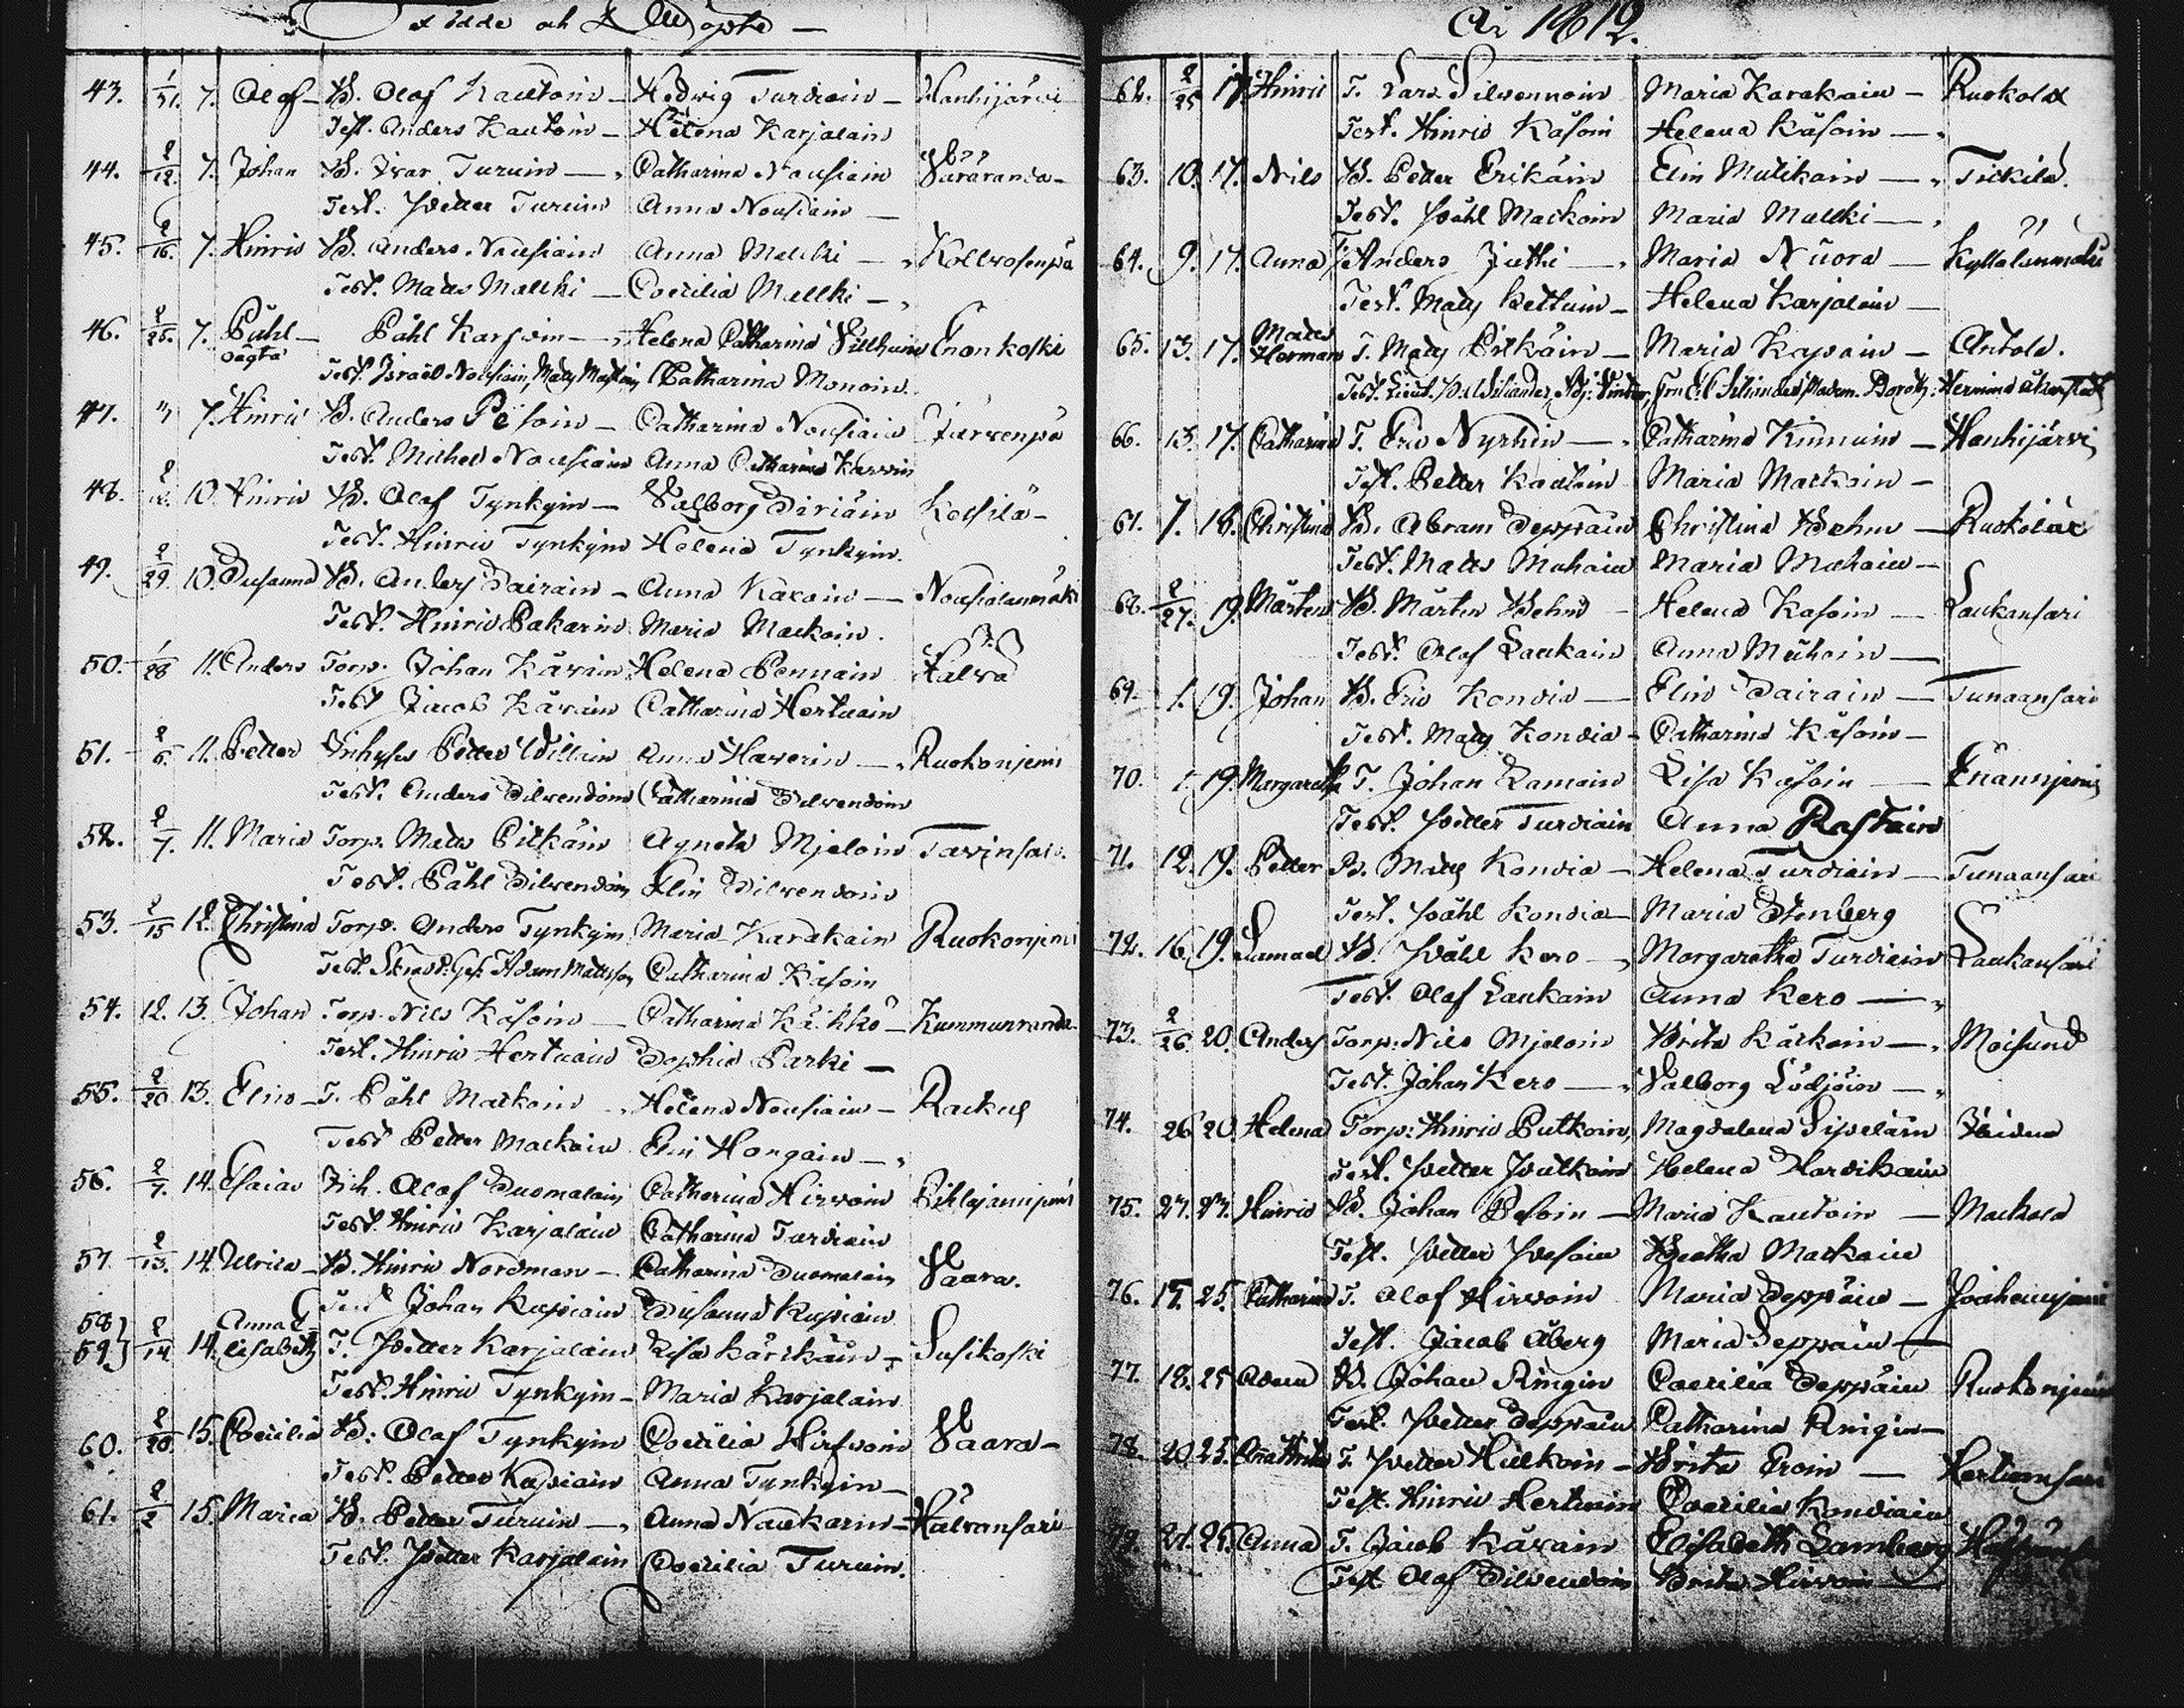 Födde och Döpte —
43. 1/31. 7. Olof — B. Olof Kautoin — Hedvig Turviain — Hanhijärvi
Test. Anders Kautoin — Helena Karjalain
44. 2/12. 7. Johan B. Ivar Turuin — Catharina Nousiain Vaararanda —
Test. Petter Turuin Anna Nousiain —
45. 2/16. 7. Hinric B. Anders Nousiain Anna Matikki —
Test. Matts — Coecilia
46. 2/25. 7. Påhl — Påhl Karvoin — Helena Catharina Enonkoski
oägta Test. Israel Nousiain, Mats Catharina Monoin.
47. " 7. Hinric B. Anders Pesoin — Catharina Nousiain Järvenpä
Test. Michel Nousiain Anna Catharina Karvin
48. 2/ 10. Hinric B. Olof Tynkyin — Valborg Siriäin
Test. Hinric Tynkyin Helena Tynkyin.
49. 2/29. 10. Susanna B. Anders Sairain — Anna Karoin — Nousialanmäki
Test. Hinric Pakarin Maria Matkoin.
50. 1/28 11. Anders Torp. Johan Käräin Helena Pennain
Test. Jacob Käräin Catharina Hertuain
51. 2/6. 11. Petter Inhyses Petter Willain Anna Haverin — Ruokonjemi
Test. Anders Silvendoin Catharina Silvendoin
52. 2/7. 11. Maria Torp. Matts Pitkäin Agneta Mjeloin
Test. Påhl Silvendoin Elin Silvendoin
53. 2/15 12. Christina Torp. Anders Tynkyin Maria Karakain Ruokonjemi
Test. Adam Mattsson Catharina Käsoin
54. 12. 13. Johan Torp. Nils Käsoin — Catharina Käckö — Kummunranda
Test. Hinric Hertuain Sophia Parki —
55. 2/20 13. Elin — T. Påhl Matkoin — Helena Nousiain —
Test. Petter Matkoin Elin Hongain —
56. 2/7. 14. Esaias Inh. Olof Suomalain Catharina Hirvoin Pihlajanjemi
Test. Hinric Karjalain Catharina Turviain
57. 2/13. 14. Ulrica — B. Hinric Nordman — Catharina Suomalain Vaara.
Test. Johan Kupiain Susanna Kupiain
58 Anna
59} 2/14 14. Elisabeth T. Petter Karjalain Lisa Kärkäin — Susikoski
Test. Hinric Tynkyin — Maria Karjalain
60. 2/20. 15. Coecilia B. Olof Tynkyin Coecilia Hirfvoin Vaara —
Test. Petter Kupiain Anna Tynkyin —
61. 2/2 15. Maria B. Petter Turuin — Anna Naukarin — Hälvänsari
Test. Petter Karjalain Coecilia Turuin.
År 1812.
62. 2/25 17. Hinric T. Lars Silvennoin Maria Karakain — Ruokola
Test. Hinric Käsoin Helena Käsoin —
63. 10. 17. Nils B. Petter Erikäin Elin Mutikain —
Test. Påhl Matkoin Maria —
64. 9. 17. Anna T. Anders — Maria Nuora —
Test. Mats Kettuin — Helena Karjalain —
65. 13. 17. Matts Herman T. Mats Pitkäin — Maria Kupiain — Antola.
Test. Lieut.
66. 13. 17. Catharina T. Eric Nyrhin — Catharina Kinnuin — Hanhijärvi
Test. Petter Kautoin Maria Matkoin —
67. 7. 18. Christina B. Abram Seppäin Christina Behm — Ruokola
Test. Matts Muhoin Maria Muhoin —
68. 2/27. 19. Mårten B. Mårten Behm — Helena Kasoin — Laukansari
Test. Olof Laukain Anna Muhoin —
69. 1. 19. Johan B. Eric Kondia — Elin Sairain — Tunaansari
Test. Mats Kondia — Catharina Käsoin —
70. 1. 19. Margaretha T. Johan Ramoin Lisa Käsoin — Enannjemi
Test. Petter Turviain Anna Rastain
71. 12. 19. Petter B. Mats Kondia — Helena Turviain — Tunaansari
Test. Påhl Kondia — Maria Stenberg
72. 16. 19. Samuel B. Påhl Kero — Margaretha Turviain Laukansari
Test. Olof Laukain Anna Kero —
73. 2/26. 20. Anders Torp. Nils Mjeloin Brita Kätkoin — Moisund
Test. Johan Kero — Valborg
74. 26 20. Helena Torp. Hinric Putkoin, Magdalena Sipeläin
Test. Petter Putkoin Helena Harvikain
75. 27. 27. Hinric B. Johan Pesoin — Maria Kautoin —
Test. Petter Pesoin Beatha Matkoin
76. 17. 25. Catharina T. Olof Hirvoin Maria Seppäin —
Test. Jacob Åberg Maria Seppäin —
77. 18. 25 Adam B. Johan Ringin Coecilia Seppäin Ruokonjemi
Test. Petter Seppäin Catharina Ringin —
78. 20. 25. Anna Brita T. Petter Hulkoin — Brita Eroin —
Test. Hinric Hertuain Coecilia Kondiain
79. 21. 25. Anna T. Jacob Käräin Elisabeth Lamberg
Test. Olof Silvendoin Brita Hirvoin —